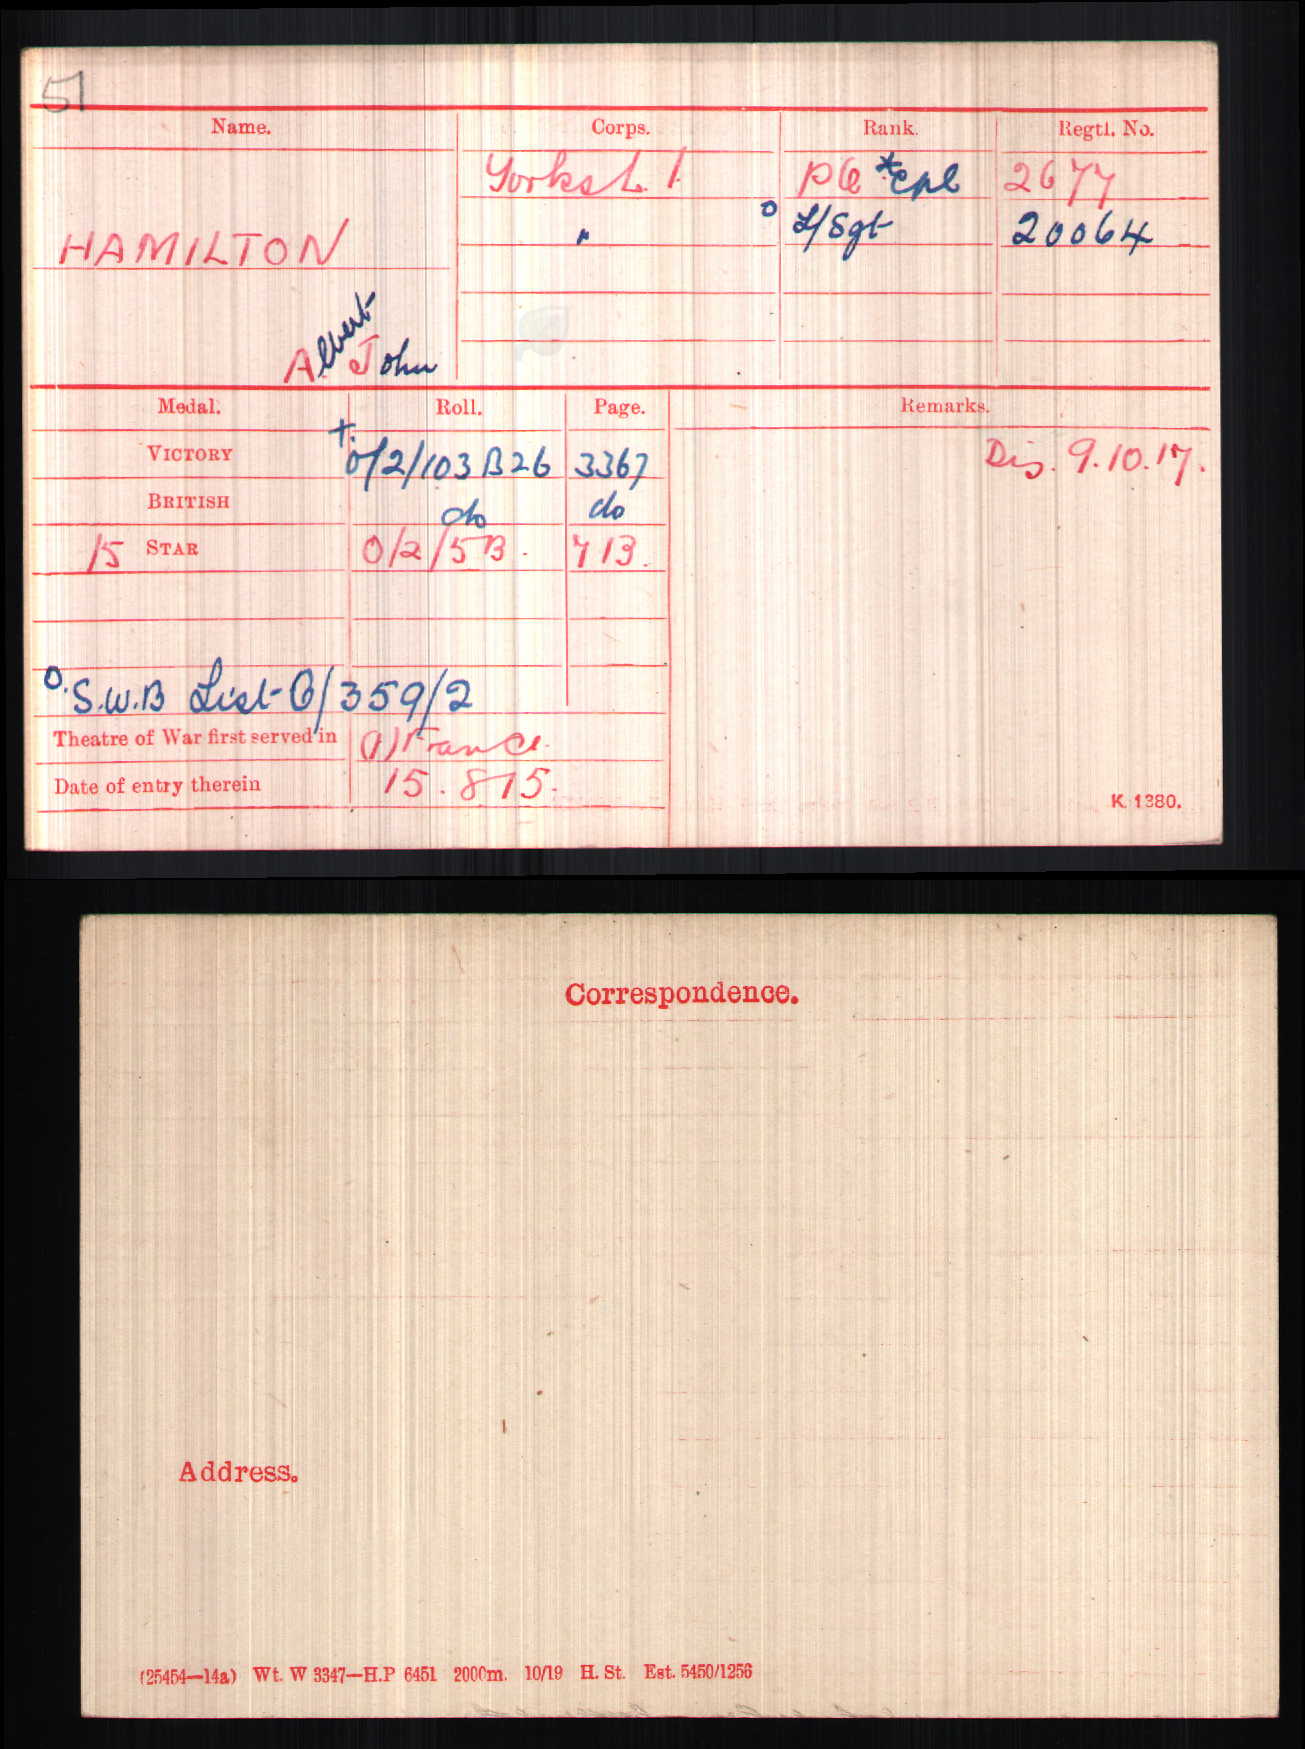 51
Name. Corps. Rank. Regtl. No.
Yorks L.I. Pte *Cpl 2677
HAMILTON " o L/Sgt 20064
Albert John
Medal. Roll. Page. Remarks.
VICTORY +. O/2/103 B26 3367 Dis. 9.10.17.
BRITISH do do
15 STAR O/2/5B. 713.
o. S.W.B List O/359/2
Theatre of War first served in (1) France.
Date of entry therein 15.8.15.
K. 1380.
Correspondence.
Address.
(25454—14a) Wt. W 3347—H.P 6451 2000m. 10/19 H. St. Est. 5450/1256